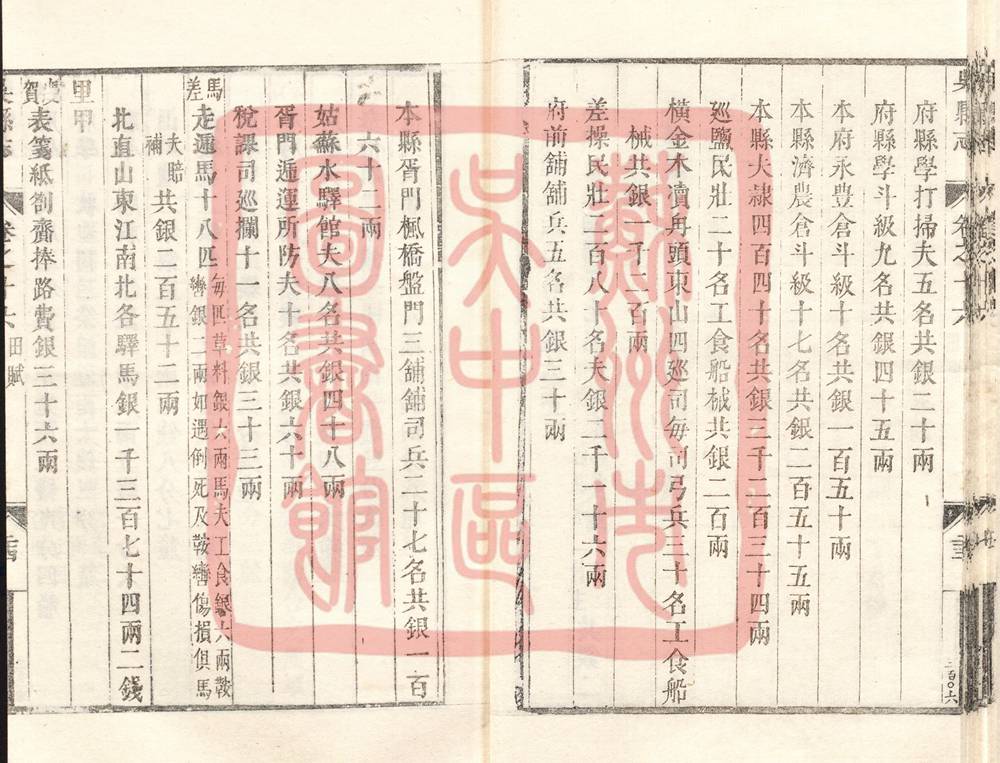 吳縣志
卷之十六
三百〇六
府縣學打掃夫五名共銀二十兩
府縣學斗級九名共銀四十五兩
本府永豐倉斗級十名共銀一百五十兩
本縣濟農倉斗級十七名共銀二百五十五兩
本縣夫隸四百四十名共銀三千二百三十四兩
巡鹽民壯二十名工食船械共銀二百兩
橫金木瀆角頭東山四巡司每司弓兵三十名工食船
械共銀一千二百兩
差操民壯二百八十名夫銀二千一十六兩
府前舖舖兵五名共銀三十兩
本縣胥門楓橋盤門三舖舖司兵二十七名共銀一百
六十二兩
姑蘇水驛館夫八名共銀四十八兩
胥門遞運所防夫十名共銀六十兩
稅課司巡攔十一名共銀三十三兩
馬差
走遞馬十八匹
每匹草料銀六兩馬夫工食銀六兩鞍
轡銀二兩如遇倒死及鞍轡傷損俱馬
夫賠
補
共銀二百五十二兩
北直山東江南北各驛馬銀一千三百七十四兩二錢
里甲
慶賀
表箋紙劄齎捧路費銀三十六兩
吳縣志
卷之十六
田賦
蘇州市
吳中區
圖書館